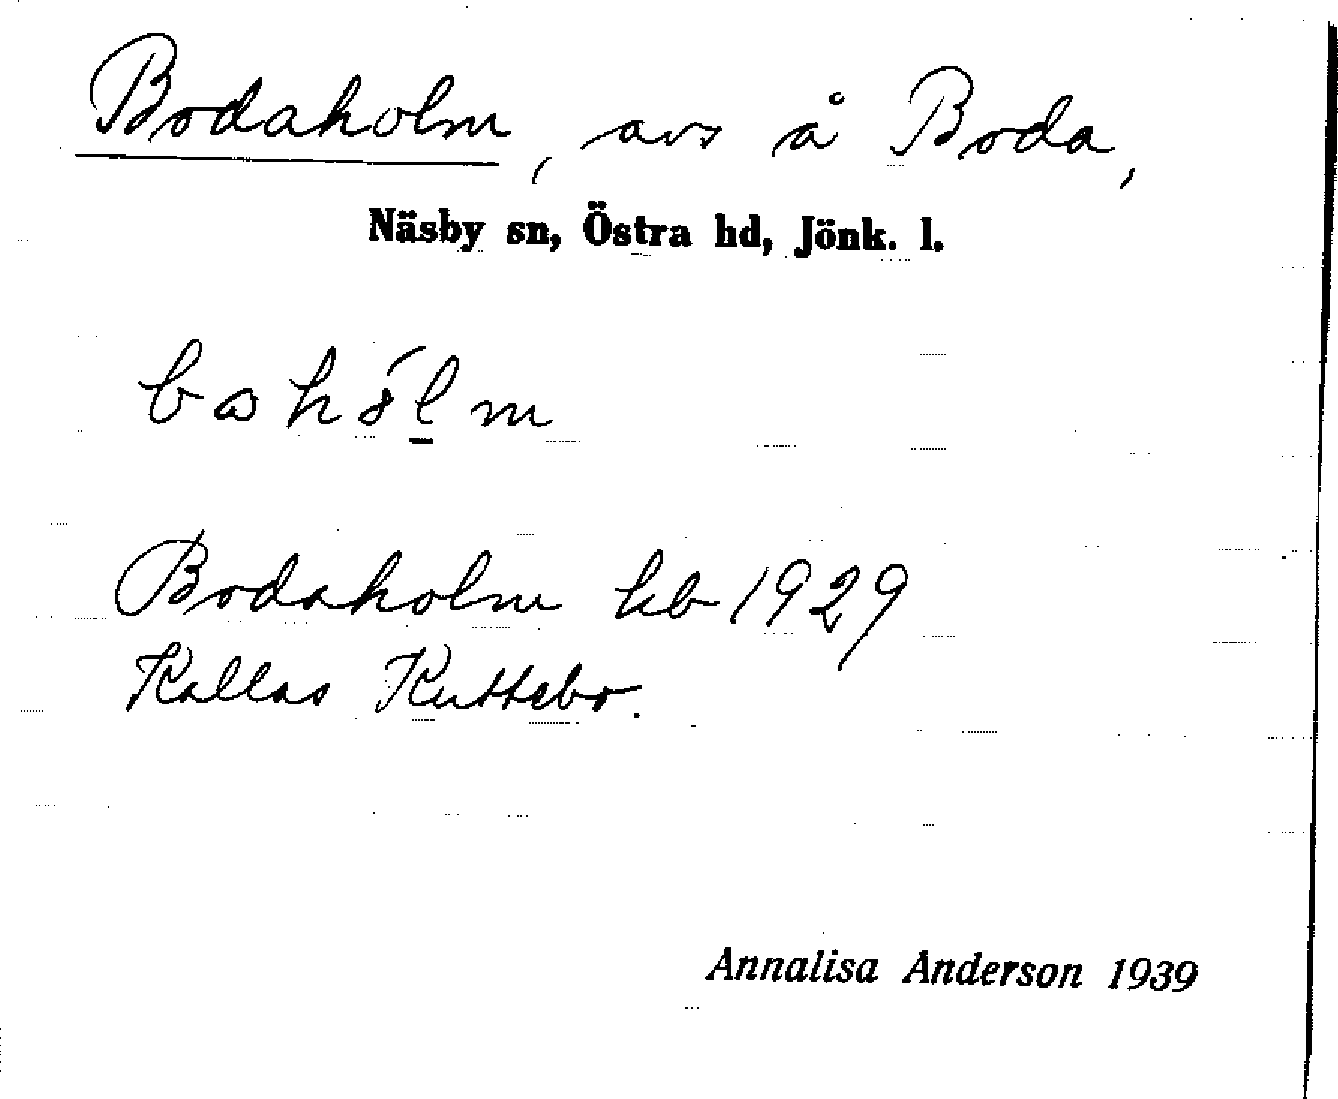 Bodaholm, avs å Boda,
Näsby sn, Östra hd, Jönk. l.
Bodaholm kb 1929
Kallas Kuttebo.
Annalisa Anderson 1939